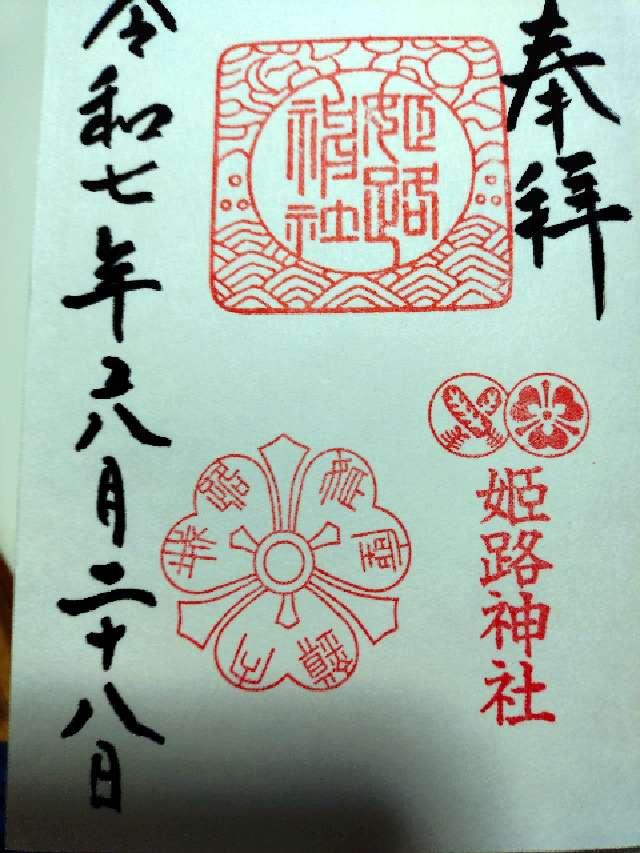 奉拝
姫路
神社
姫路神社
令和七年八月二十八日